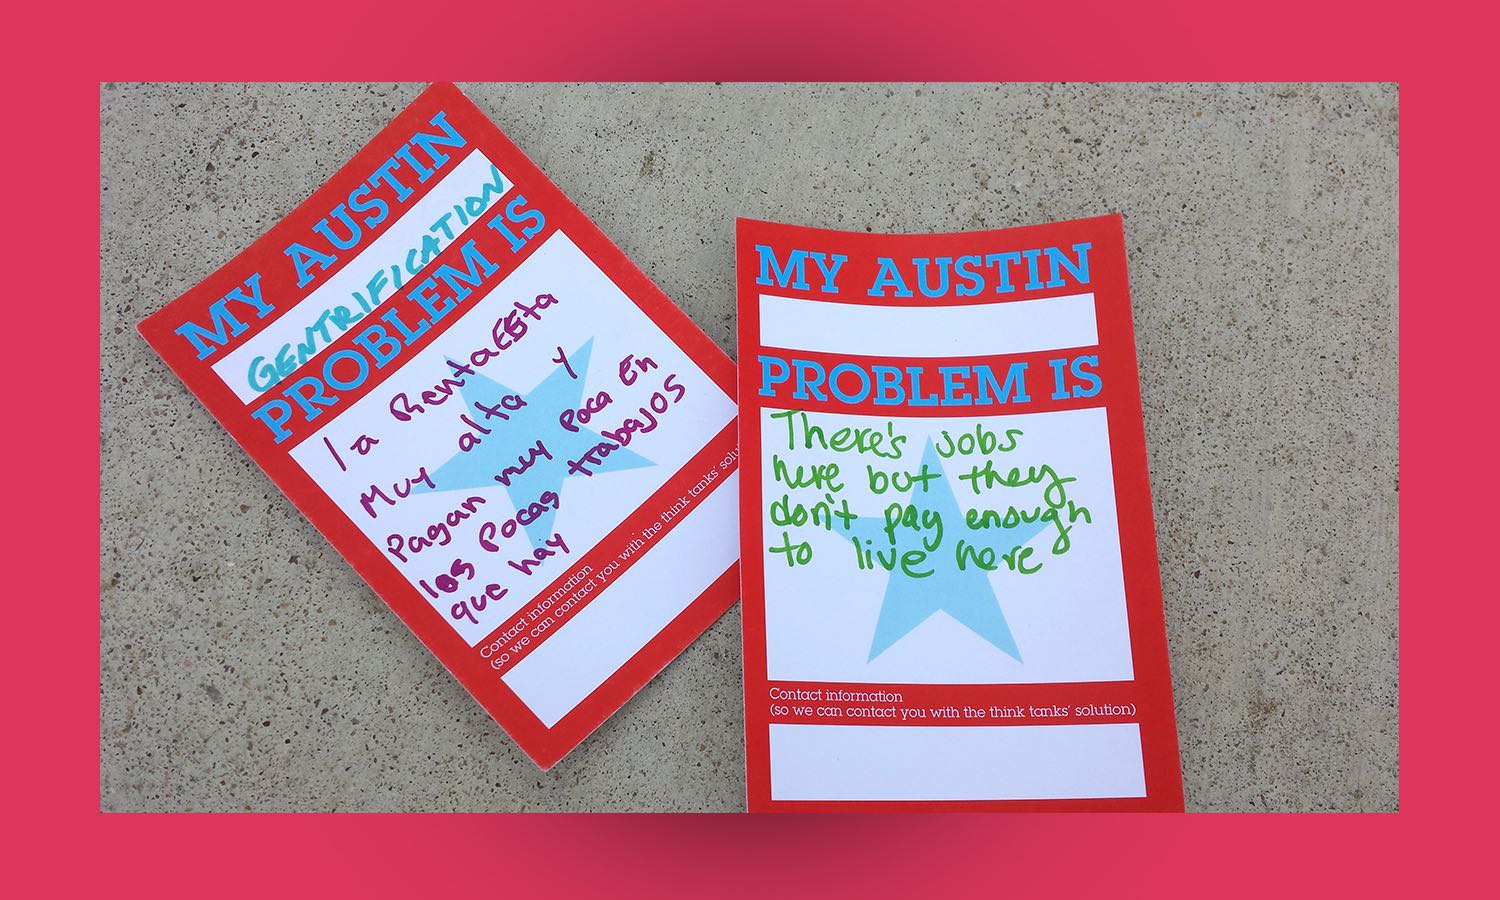 MY AUSTIN
GENTRIFICATION
PROBLEM IS
la Renta Esta
Muy alta y
Pagan muy Poca En
los Pocas trabajos
que hay
Contact information
(so we can contact you with the think tanks' solu
MY AUSTIN
PROBLEM IS
There's jobs
here but they
don't pay enough
to live here
Contact information
(so we can contact you with the think tanks' solution)